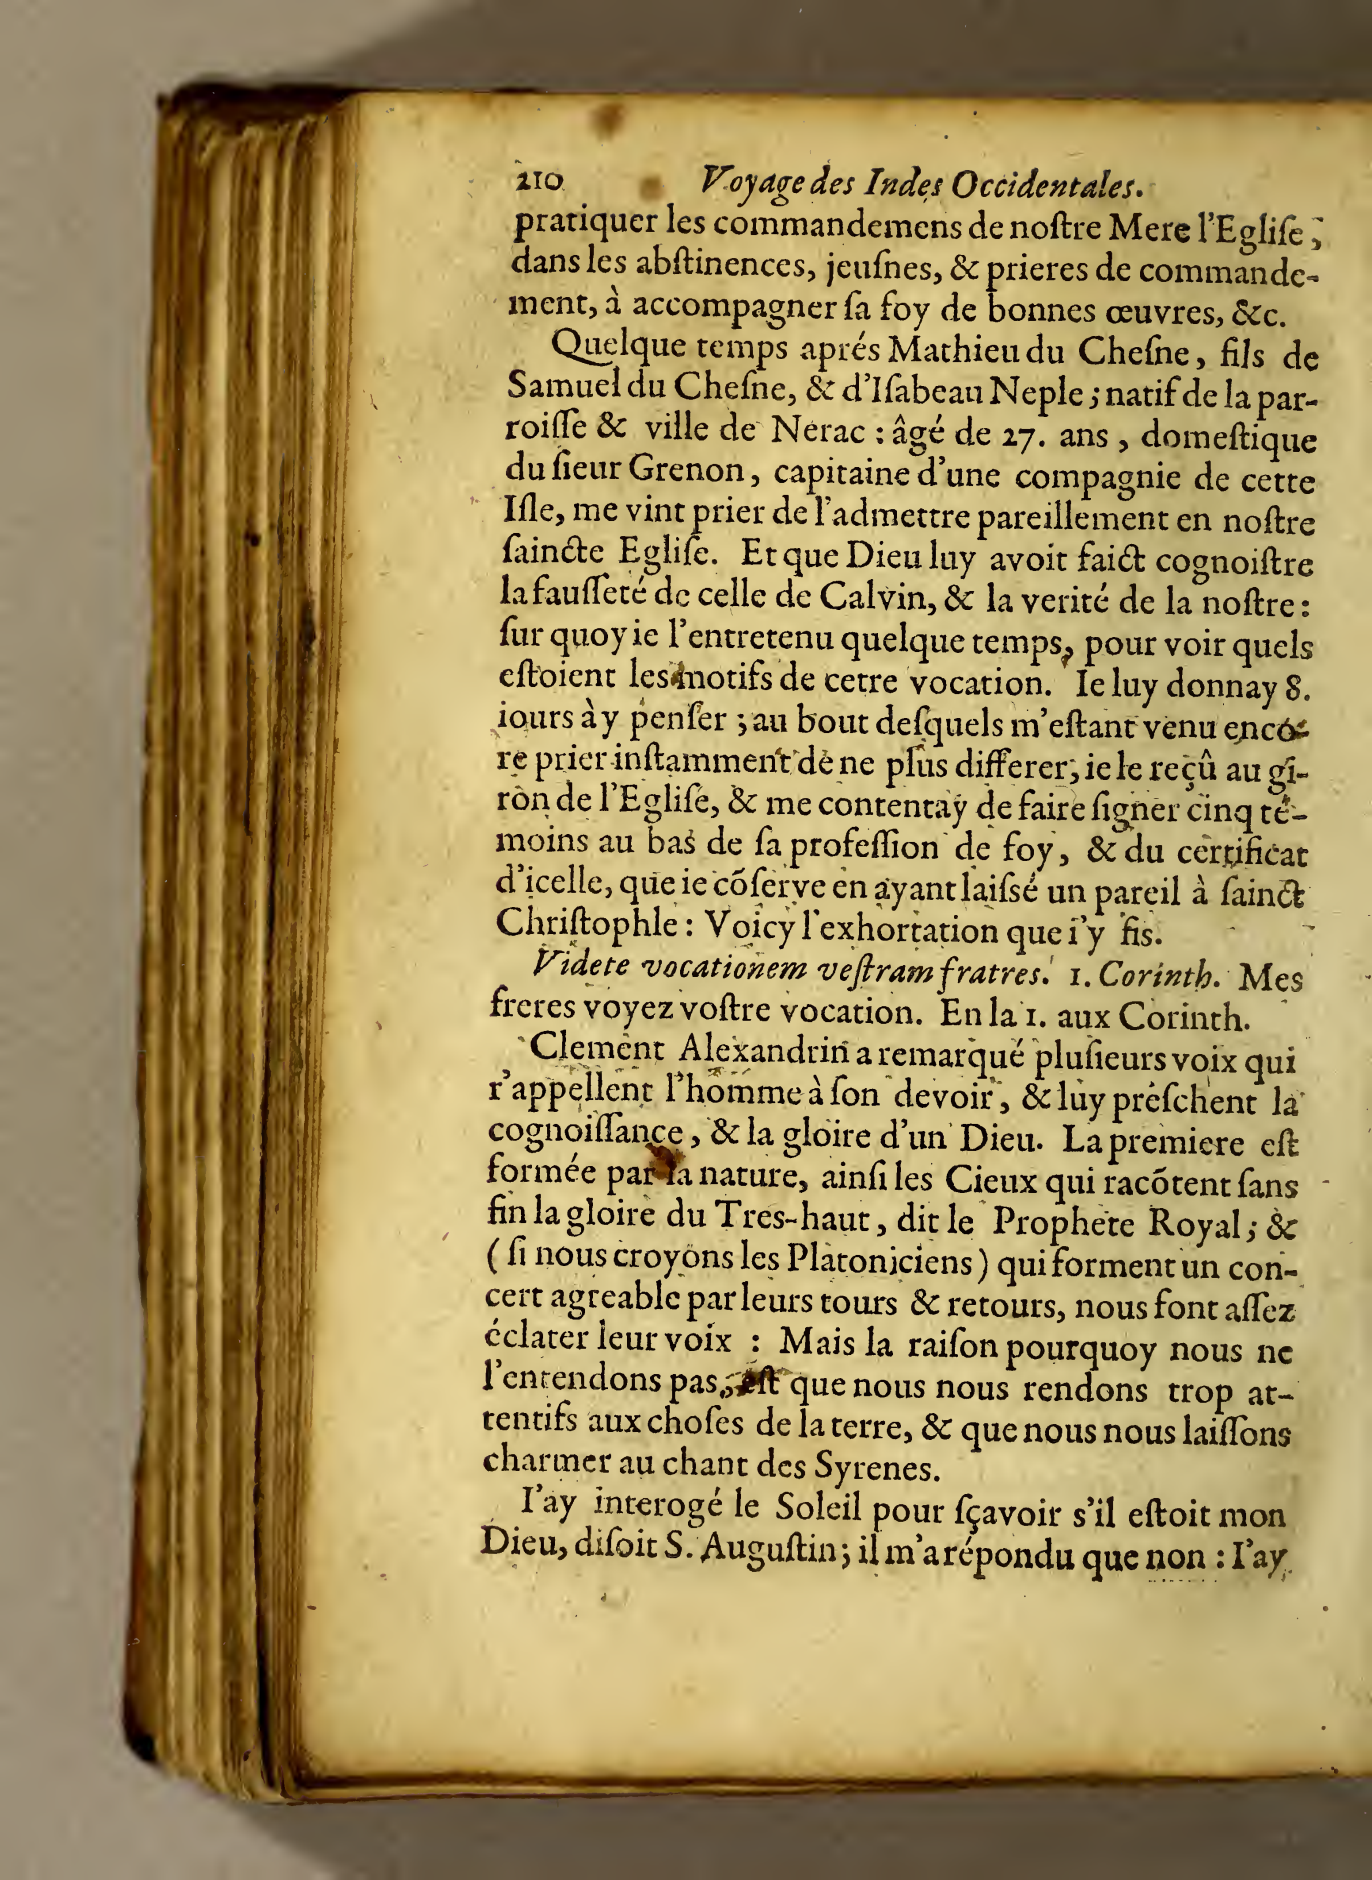 210 Voyage des Indes Occidentales.
pratiquer les commandemens de noſtre Mere l'Egliſe,
dans les abſtinences, jeuſnes, & prieres de commande-
ment, à accompagner ſa foy de bonnes œuvres, &c.
Quelque temps aprés Mathieu du Cheſne, fils de
Samuel du Cheſne, & d'Iſabeau Neple; natif de la par-
roiſſe & ville de Nerac : âgé de 27. ans, domeſtique
du ſieur Grenon, capitaine d'une compagnie de cette
Iſle, me vint prier de l'admettre pareillement en noſtre
ſaincte Egliſe. Et que Dieu luy avoit faict cognoiſtre
la fauſſeté de celle de Calvin, & la verité de la noſtre:
ſur quoy ie l'entretenu quelque temps, pour voir quels
eſtoient les motifs de cette vocation. Ie luy donnay 8.
iours à y penſer; au bout deſquels m'eſtant venu enco-
re prier inſtamment de ne plus differer, ie le reçû au gi-
ron de l'Egliſe, & me contentay de faire ſigner cinq té-
moins au bas de ſa profeſſion de foy, & du certificat
d'icelle, que ie cõſerve en ayant laiſsé un pareil à ſainct
Chriſtophle : Voicy l'exhortation que i'y fis.
Videte vocationem veſtram fratres. 1. Corinth. Mes
freres voyez voſtre vocation. En la 1. aux Corinth.
Clement Alexandrin a remarqué pluſieurs voix qui
r'appellent l'homme à ſon devoir, & luy préſchent la
cognoiſſance, & la gloire d'un Dieu. La premiere eſt
formée par la nature, ainſi les Cieux qui racõtent ſans
fin la gloire du Tres-haut, dit le Prophete Royal; &
(ſi nous croyons les Platoniciens) qui forment un con-
cert agreable par leurs tours & retours, nous font aſſez
éclater leur voix : Mais la raiſon pourquoy nous ne
l'entendons pas, eſt que nous nous rendons trop at-
tentifs aux choſes de la terre, & que nous nous laiſſons
charmer au chant des Syrenes.
I'ay interogé le Soleil pour ſçavoir s'il eſtoit mon
Dieu, diſoit S. Auguſtin; il m'a répondu que non : I'ay